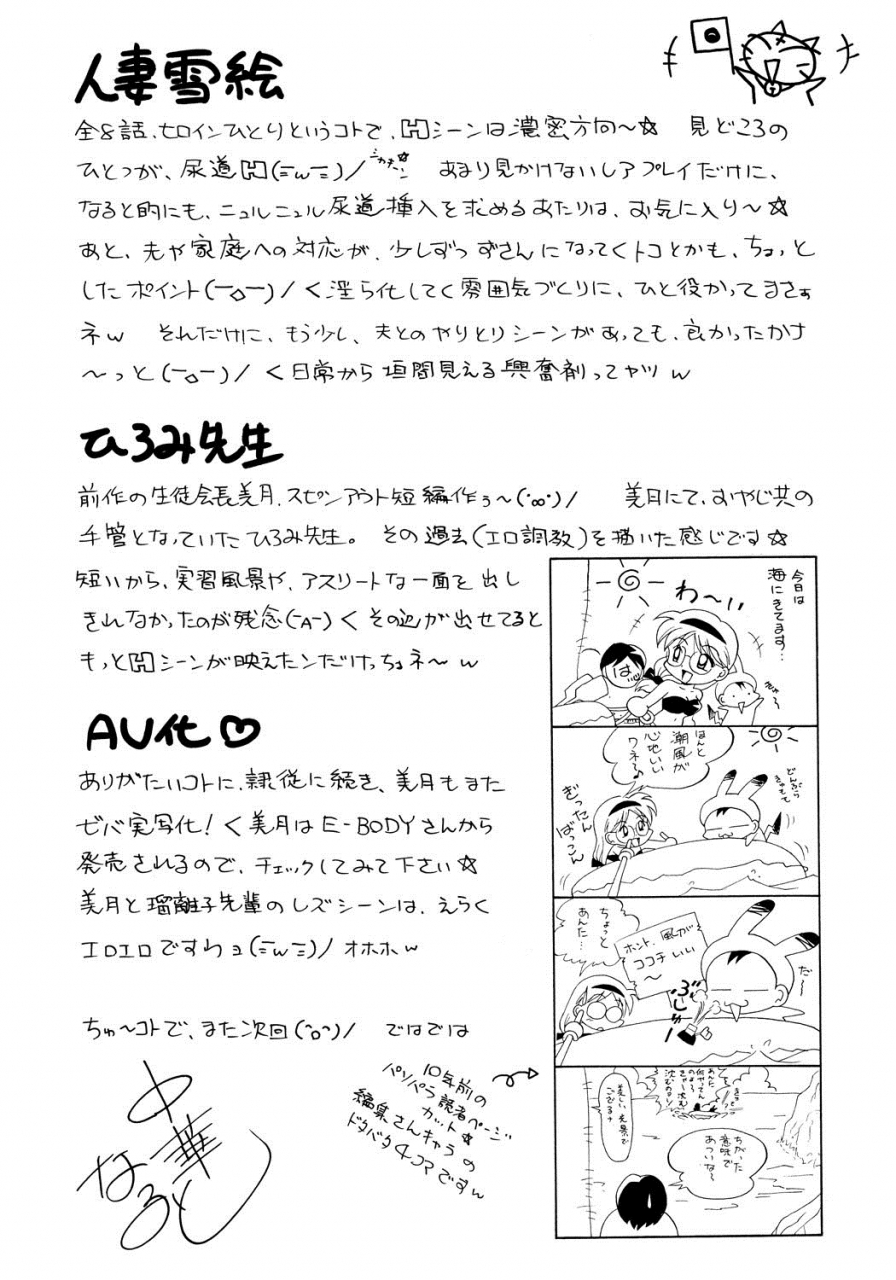 人妻雪絵
全8話、ヒロインひとりというコトで、Hシーンは濃密方向～☆　見どころの
ひとつが、尿道H(=w=)/　あまり見かけないレアプレイだけに、
なると的にも、ニュルニュル尿道挿入を求めるあたりは、お気に入り～☆
あと、夫や家庭への対応が、少しずつずさんになってくトコとかも、ちょっと
したポイント(￣△￣)/＜淫ら化してく雰囲気づくりに、ひと役かってまさぁ
ネw　それだけに、もう少し、夫とのやりとりシーンがあっても、良かったかナ
～っと(￣△￣)/＜日常から垣間見える興奮剤ってヤツw
ひろみ先生
前作の生徒会長美月、スピンアウト短編作ぅ～(･∞･)/　美月にて、おやじ共の
手管となっていたひろみ先生。その過去(エロ調教)を描いた感じです☆
短いから、実習風景や、アスリートな一面を出し
きれなかったのが残念(￣A￣)＜その辺が出せてると
もっとHシーンが映えたンだけっちょネ～w
AV化♡
ありがたいコトに、隷従に続き、美月もまた
ゼバ実写化！＜美月はE-BODYさんから
発売されるので、チェックしてみて下さい☆
美月と瑠離子先輩のレズシーンは、えらく
エロエロですわョ(=w=)/オホホw
ちゅ～コトで、また次回(^o^)/　ではでは
中華なると
10年前の
パソパラ読者ページ
カット☆
編集さんキャラの
ドタバタ4コマですw
今日は
海にきてます…
わ～い
ほんと
潮風が
心地いい
ワネ～♪
ぎったん
ばっこん
ちょっと
あんた…
ホント、風が
ココチいい
～
ぶしゅー
だ～
美しい光景で
ござるナ
ちがった
意味で
あついな～